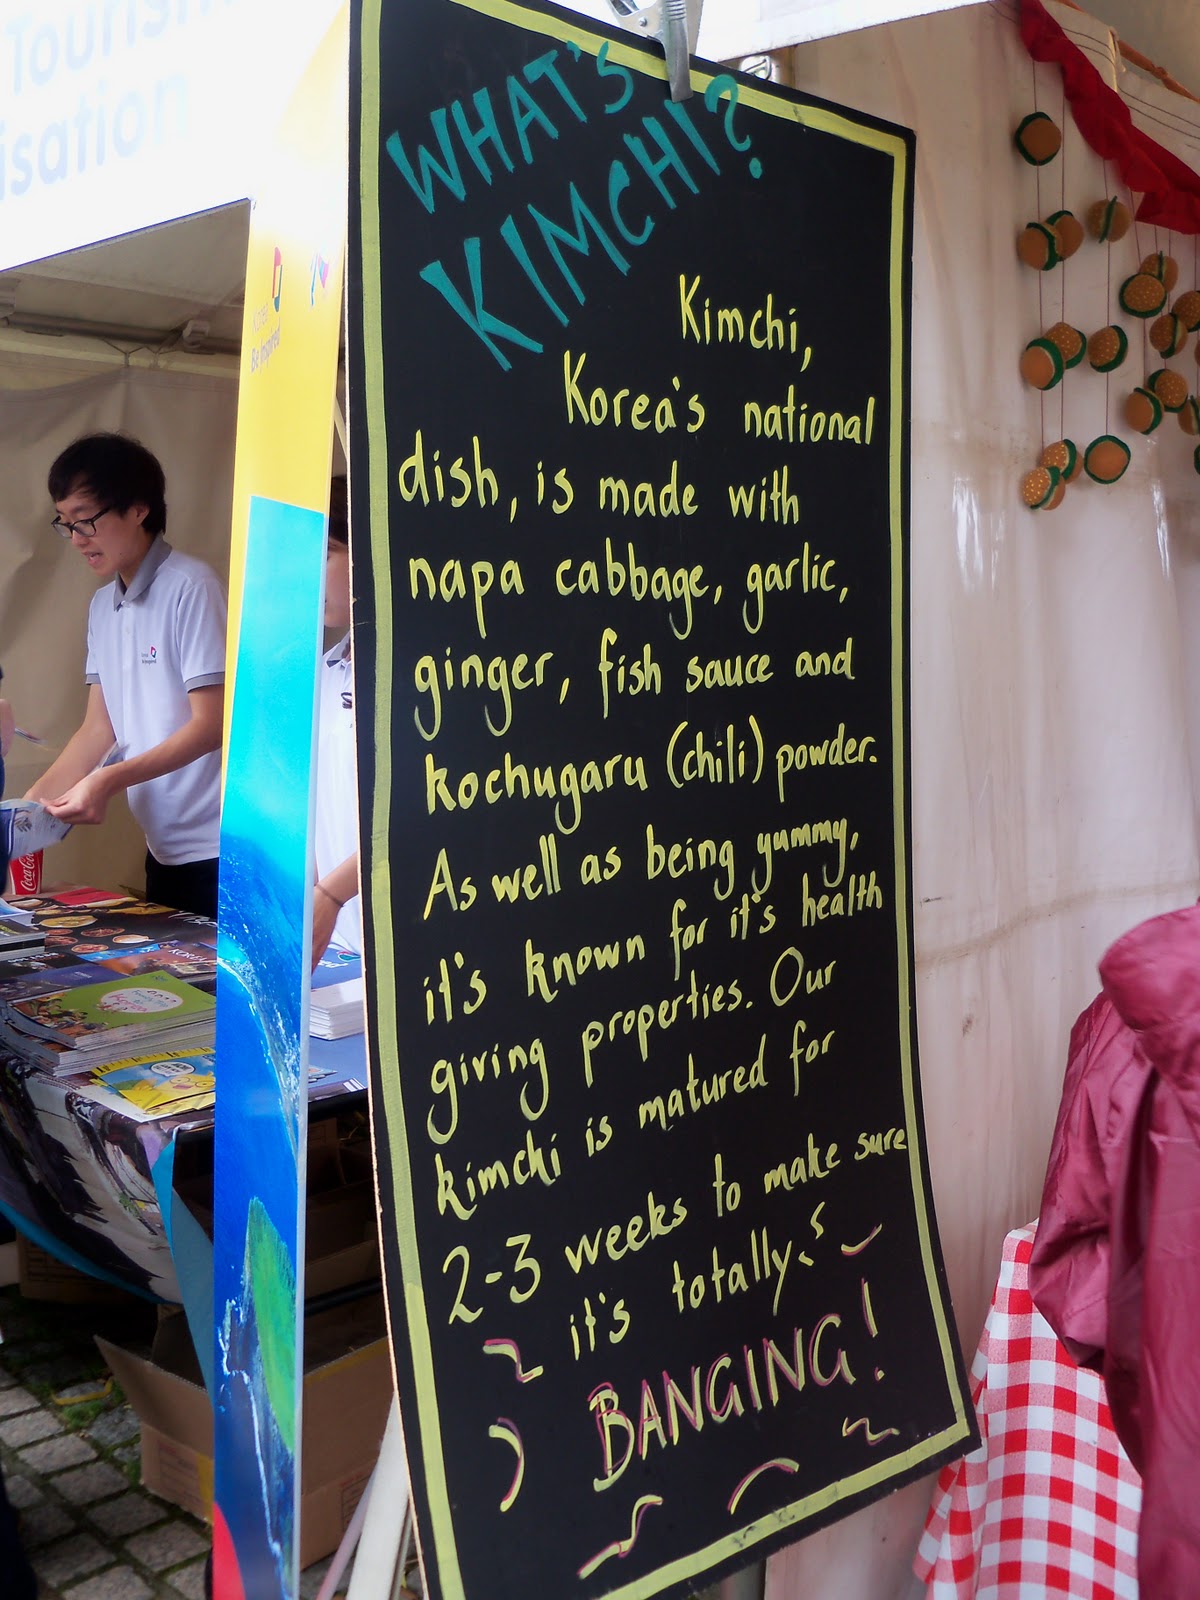 Tourism
isation
Korea
Be Inspired
WHAT'S
KIMCHI?
Kimchi,
Korea's national
dish, is made with
napa cabbage, garlic,
ginger, fish sauce and
kochugaru (chili) powder.
As well as being yummy,
it's known for it's health
giving properties. Our
kimchi is matured for
2-3 weeks to make sure
it's totally
BANGING!
Coca-Cola